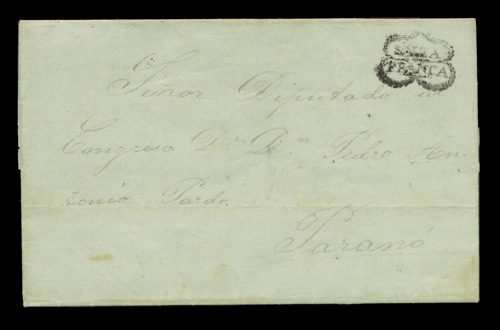 SALTA
FRANCA
Señor Diputado al
Congreso Dr. Dn Pedro An-
tonio Pardo.
Paraná